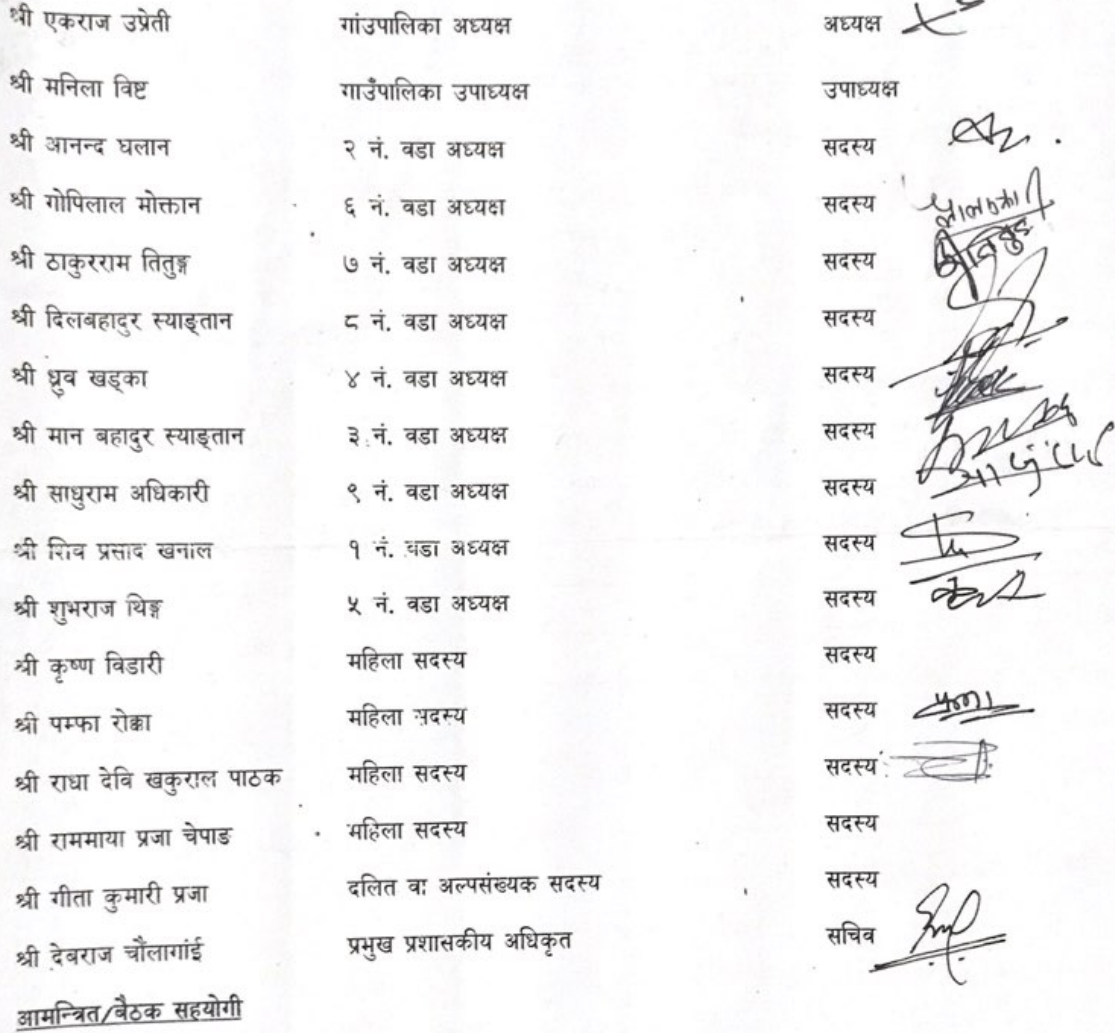 श्री एकराज उप्रेती गांउपालिका अध्यक्ष अध्यक्ष
श्री मनिला विष्ट गाउँपालिका उपाध्यक्ष उपाध्यक्ष
श्री आनन्द घलान २ नं. वडा अध्यक्ष सदस्य
श्री गोपिलाल मोक्तान ६ नं. वडा अध्यक्ष सदस्य
श्री ठाकुरराम तितुङ्ग ७ नं. वडा अध्यक्ष सदस्य
श्री दिलबहादुर स्याङ्तान ८ नं. वडा अध्यक्ष सदस्य
श्री ध्रुव खड्का ४ नं. वडा अध्यक्ष सदस्य
श्री मान बहादुर स्याङ्तान ३ नं. वडा अध्यक्ष सदस्य
श्री साधुराम अधिकारी ९ नं. वडा अध्यक्ष सदस्य
श्री शिव प्रसाद खनाल १ नं. वडा अध्यक्ष सदस्य
श्री शुभराज थिङ्ग ५ नं. वडा अध्यक्ष सदस्य
श्री कृष्ण विडारी महिला सदस्य सदस्य
श्री पम्फा रोक्का महिला सदस्य सदस्य
श्री राधा देवि खकुराल पाठक महिला सदस्य सदस्य
श्री राममाया प्रजा चेपाङ महिला सदस्य सदस्य
श्री गीता कुमारी प्रजा दलित वा अल्पसंख्यक सदस्य सदस्य
श्री देबराज चौंलागांई प्रमुख प्रशासकीय अधिकृत सचिव
आमन्त्रित/बैठक सहयोगी